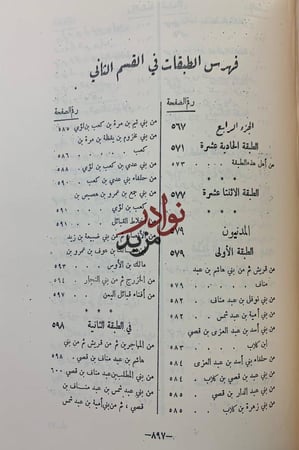 فهرس الطبقات في القسم الثاني
رقم الصفحة
الجزء الرابع ٥٦٧
الطبقة الحادية عشرة ٥٧١
من أهل هذه الطبقة ٥٧٣
الطبقة الاثنتا عشرة ٥٧٧
المدنيون ٥٧٩
الطبقة الأولى ٥٧٩
من قريش ثم من بني هاشم بن عبد
مناف ٥٧٩
من بني نوفل بن عبد مناف ٥٨٢
من بني أمية بن عبد شمس ٥٨٢
من بني أسد بن عبد العزى بن قصي
ابن كلاب ٥٨٣
من حلفاء بني أسد بن عبد العزى ٥٨٤
من بني عبد بن قصي ٥٨٤
من بني عبد الدار بن قصي ٥٨٥
من بني زهرة بن كلاب ٥٨٥
رقم الصفحة
من بني تيم بن مرة بن كعب بن لؤي ٥٨٧
من بني مخزوم بن يقظة بن مرة بن
كعب
من بني عدي بن كعب بن لؤي
من حلفاء بني عدي بن كعب ٥٩٠
من بني جمح بن عمرو بن هصيص بن
بن لؤي ٥٩١
القبائل
بني ضبيعة بن زيد
بن عوف بن عمرو بن
مالك بن الأوس ٥٩٣
من الخزرج ثم من بني النجار ٥٩٤
من أفناء قبائل اليمن ٥٩٧
في الطبقة الثانية ٥٩٨
من المهاجرين ثم من قريش ثم من بني
هاشم بن عبد مناف بن قصي
من بني المطلب بن عبد مناف ٦٠٠
من بني عبد شمس بن عبد مناف بن
قصي، ثم من بني أمية بن عبد شمس
نوادر
مزيد
-٨٩٧-